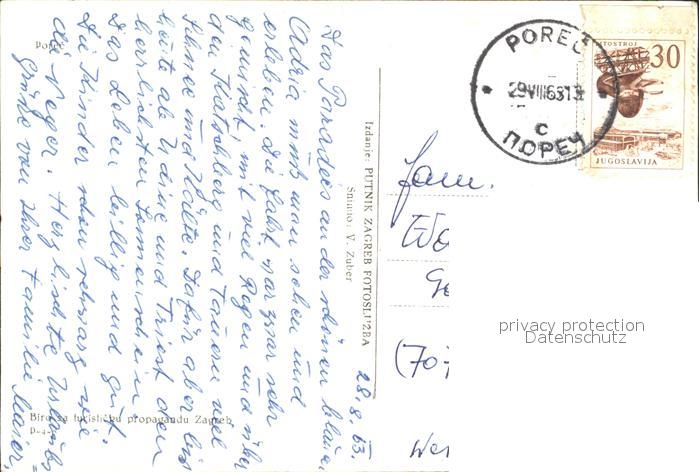 Poreč
Das Paradies an der schönen blauen
Adria muß man sehen und
erleben. Die Fahrt war zwar sehr
gemischt mit viel Regen und über
den Katschberg und Tauern viel
Schnee und Kälte. Dafür aber bis
heute ab Udine und Triest den
herrlichsten Sonnenschein.
Das Leben billig und gut.
Die Kinder schon schwarz wie
die Neger. Herzlichste Urlaubs
grüße von Ihrer Familie Maier
28. 8. 63.
Izdanje: PUTNIK ZAGREB FOTOSLUŽBA
Snimio: V. Zuber
Biro za turističku propagandu Zagreb
POREČ
29VIII6313
c
ПОРЕЧ
LITOSTROJ
30
JUGOSLAVIJA
Fam.
(70
privacy protection
Datenschutz